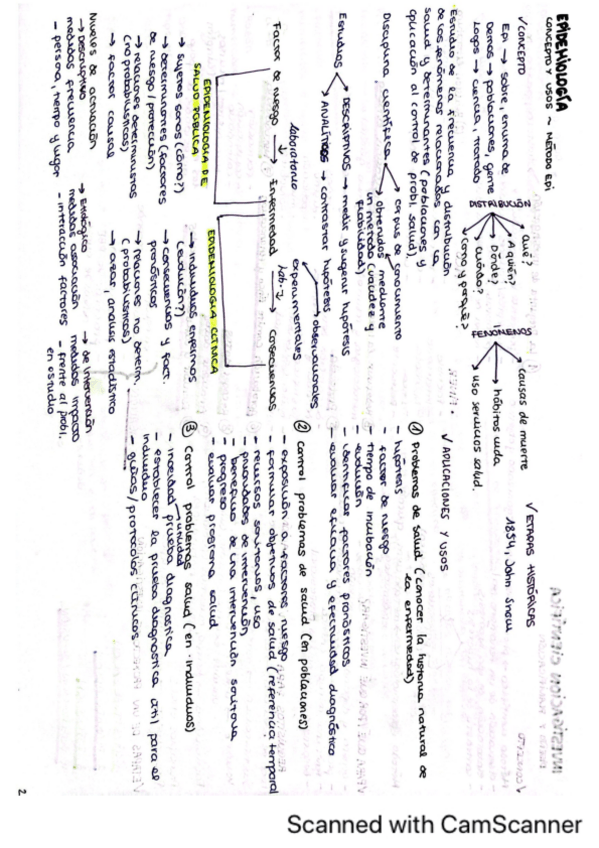 EPIDEMIOLOGÍA
CONCEPTO Y USOS ~ MÉTODO EPI
✓ CONCEPTO
Epi → sobre, encima de
Demos → poblaciones, gente
Logos → ciencia, tratado
Estudio de la frecuencia y distribución
de los fenómenos relacionados con la
salud y determinantes (poblaciones y
aplicación al control de probl. salud).
DISTRIBUCIÓN
Qué?
A quién?
Dónde?
Cuándo?
Cómo y por qué?
FENÓMENOS
causas de muerte
hábitos vida
uso servicios salud.
✓ ETAPAS HISTÓRICAS
1854, John Snow
Disciplina científica
corpus de conocimiento
obtenidos mediante
un método (validez y
fiabilidad)
Estudios
DESCRIPTIVOS → medir y sugerir hipótesis
ANALÍTICOS → contrastar hipótesis
observacionales
experimentales
Laboratorio
Lab.
Factor de riesgo → Enfermedad → Consecuencias
EPIDEMIOLOGÍA DE
SALUD PÚBLICA
→ sujetos sanos (cómo?)
→ determinantes (factores
de riesgo / protección)
→ relaciones deterministas
(no probabilísticas)
→ factor causal
EPIDEMIOLOGÍA CLÍNICA
→ individuos enfermos
(evolución?)
→ consecuencias y fact.
pronósticos
→ relaciones no determin.
(probabilísticas)
→ azar, análisis estadístico
Niveles de actuación
→ descriptivo
medidas frecuencia
- persona, tiempo y lugar
→ etiológico
medidas asociación
- interacción factores
→ de intervención
medidas impacto
- frente al probl.
en estudio
✓ APLICACIONES Y USOS
① Problemas de salud (conocer la historia natural de
la enfermedad)
- hipótesis
- factor de riesgo
- tiempo de incubación
- evolución
- identificar factores pronósticos
- evaluar eficacia y efectividad diagnóstico
② Control problemas de salud (en poblaciones)
- exposición a factores riesgo
- formular objetivos de salud (referencia temporal
- recursos sanitarios, uso
- prioridades de intervención
- beneficio de una intervención sanitaria
- progreso
- evaluar programa salud
③ Control problemas salud (en individuos)
- prueba diagnóstica
- establecer la prueba diagnóstica útil para el
individuo
- guías / protocolos clínicos
2
Scanned with CamScanner